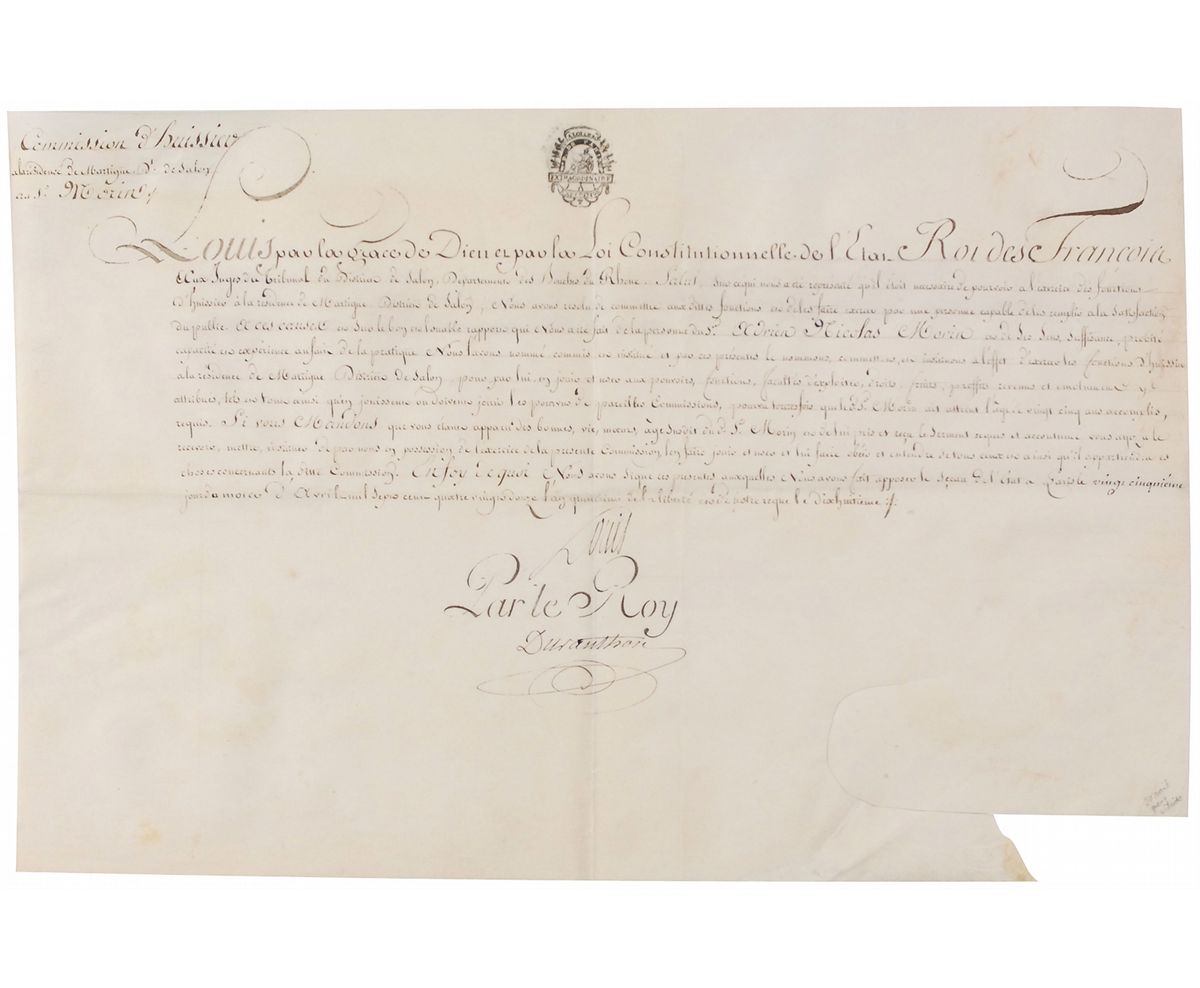 Commission d'huissier
à la résidence de Martigue D.t de Salon
au S.r Morin
EXTRAORDINAIRE
Louis par la grace de Dieu et par la Loi Constitutionnelle de l'Etat Roi des François
Aux Juges du Tribunal du District de Salon, Departement des Bouches du Rhone Salut, sur ce qui nous a été representé qu'il étoit necessaire de pourvoir à l'exercice des fonctions
d'huissier à la residence de Martigue District de Salon, Nous avons resolu de commettre aux dittes fonctions et de les faire exercer par une personne capable de les remplir à la satisfaction
du public. A ces causes et sur le bon et louable rapport qui Nous a été fait de la personne du S.r Adrien Nicolas Morin et de ses sens, suffisance, probité
capacité et expérience au fait de la pratique. Nous l'avons nommé commis et institué et par ces présentes le nommons, commettons, et instituons à l'effet d'exercer les fonctions d'huissier
à la résidence de Martigue District de Salon, pour par lui, en jouir et user aux pouvoirs, fonctions, facultés d'exploiter, droits, fruits, proffits revenus et emolumens y
attribués, tels et tout ainsi qu'en jouissent ou doivent jouir les pourvus de pareilles Commissions, pourvu toutesfois que led. S. Morin ait atteint l'âge de vingt cinq ans accomplis,
requis. Si vous Mandons que vous étant apparu des bonnes, vie, moeurs, âge susdit du d. S.r Morin et de lui pris et reçu le serment requis et accoutumé vous ayez à le
recevoir, mettre, instituer de par nous en possession de l'exercice de la presente Commission, l'en faire jouir et user et lui faire obéir et entendre de tous ceux et ainsi qu'il appartiendra es
choses concernant la ditte Commission. En foy de quoi Nous avons signé ces presentes auxquelles Nous avons fait apposer le sceau de l'état a Paris le vingt cinquième
jour du mois d'Avril mil sept cent quatre vingt douze l'an quatrieme de la liberté et de notre regne le dixhuitieme
Louis
Par le Roy
Duranthon